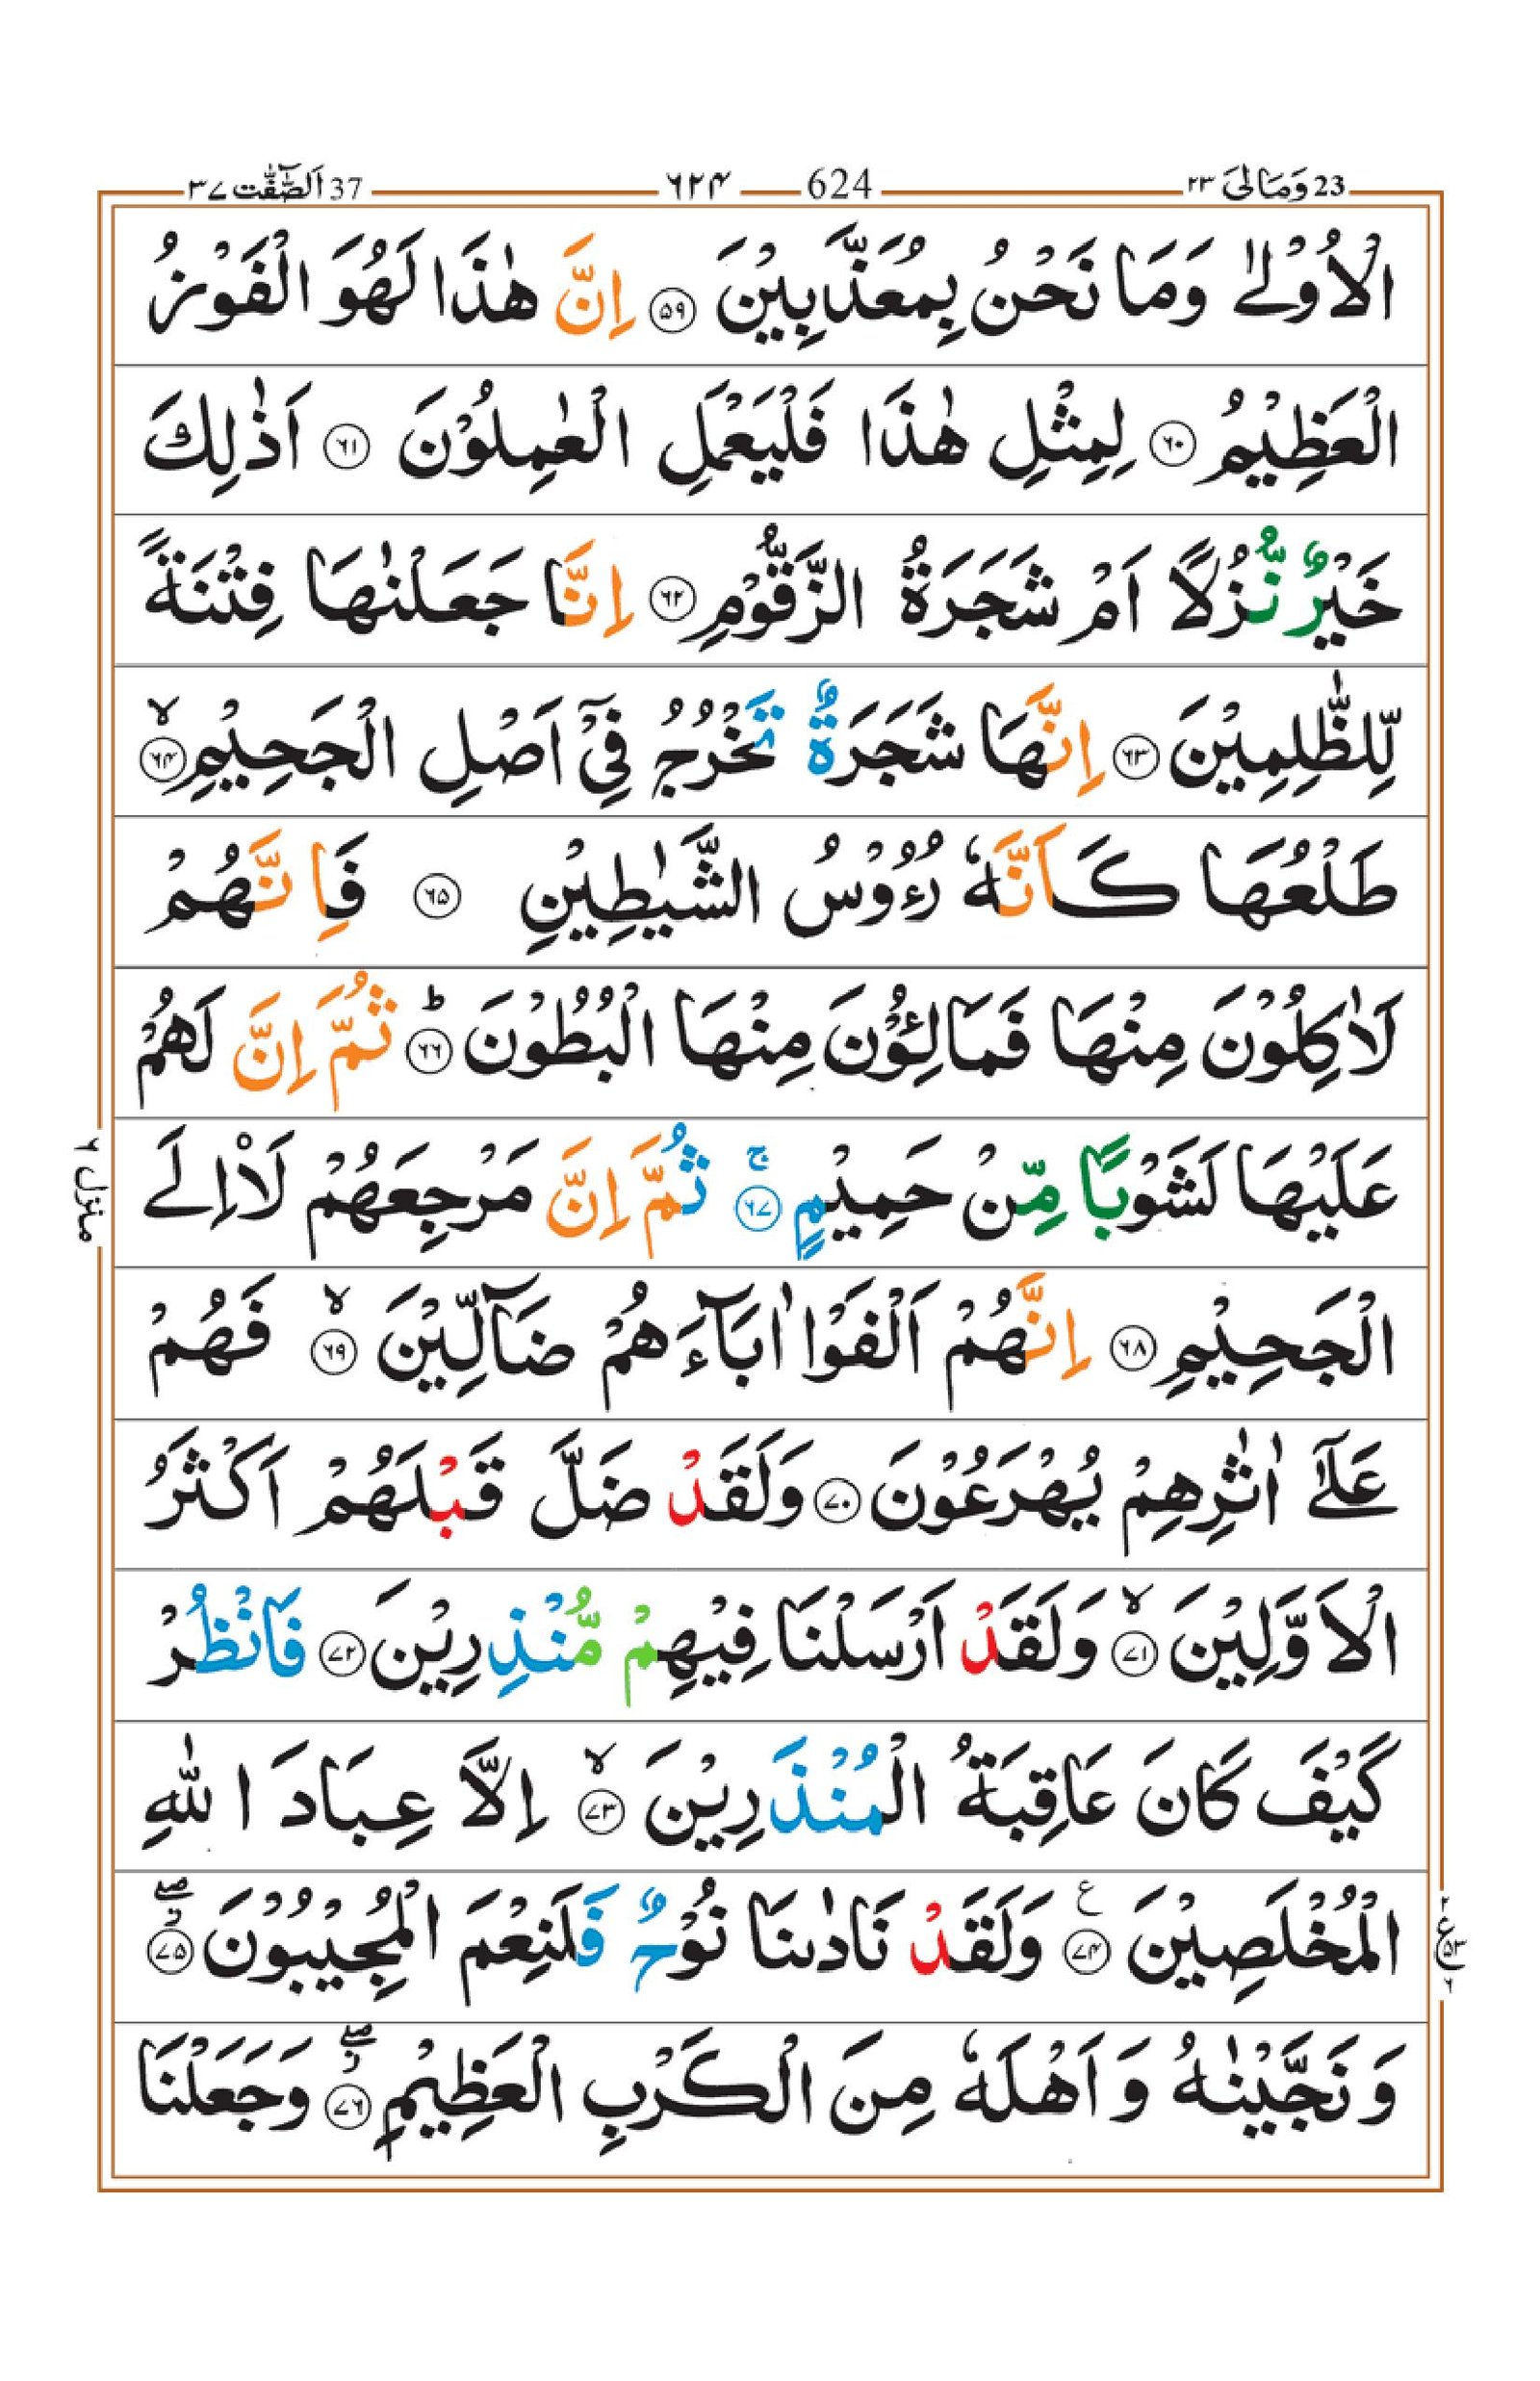 37 اَلصّٰٓفّٰت ٣٧ ٦٢٤ 624 23 وَمَالِیَ ٢٣
الْاُوْلٰى وَمَا نَحْنُ بِمُعَذَّبِيْنَ ۝٥٩ اِنَّ هٰذَا لَهُوَ الْفَوْزُ
الْعَظِيْمُ ۝٦٠ لِمِثْلِ هٰذَا فَلْيَعْمَلِ الْعٰمِلُوْنَ ۝٦١ اَذٰلِكَ
خَيْرٌ نُّزُلًا اَمْ شَجَرَةُ الزَّقُّوْمِ ۝٦٢ اِنَّا جَعَلْنٰهَا فِتْنَةً
لِّلظّٰلِمِيْنَ ۝٦٣ اِنَّهَا شَجَرَةٌ تَخْرُجُ فِيْۤ اَصْلِ الْجَحِيْمِ ۝٦٤ۙ
طَلْعُهَا كَاَنَّهٗ رُءُوْسُ الشَّيٰطِيْنِ ۝٦٥ فَاِنَّهُمْ
لَاٰكِلُوْنَ مِنْهَا فَمَالِـُٔوْنَ مِنْهَا الْبُطُوْنَ ۝٦٦ؕ ثُمَّ اِنَّ لَهُمْ
عَلَيْهَا لَشَوْبًا مِّنْ حَمِيْمٍ ۝٦٧ۚ ثُمَّ اِنَّ مَرْجِعَهُمْ لَاۡاِلَى
الْجَحِيْمِ ۝٦٨ اِنَّهُمْ اَلْفَوْا اٰبَآءَهُمْ ضَآلِّيْنَ ۝٦٩ۙ فَهُمْ
عَلٰٓى اٰثٰرِهِمْ يُهْرَعُوْنَ ۝٧٠ وَلَقَدْ ضَلَّ قَبْلَهُمْ اَكْثَرُ
الْاَوَّلِيْنَ ۝٧١ۙ وَلَقَدْ اَرْسَلْنَا فِيْهِمْ مُّنْذِرِيْنَ ۝٧٢ فَانْظُرْ
كَيْفَ كَانَ عَاقِبَةُ الْمُنْذَرِيْنَ ۝٧٣ۙ اِلَّا عِبَادَ اللّٰهِ
الْمُخْلَصِيْنَ ۝٧٤ ع وَلَقَدْ نَادٰىنَا نُوْحٌ فَلَنِعْمَ الْمُجِيْبُوْنَ ۝٧٥ۖز
وَنَجَّيْنٰهُ وَاَهْلَهٗ مِنَ الْكَرْبِ الْعَظِيْمِ ۝٧٦ۖز وَجَعَلْنَا
منزل ٦
٢ ع ٥٣ ٦